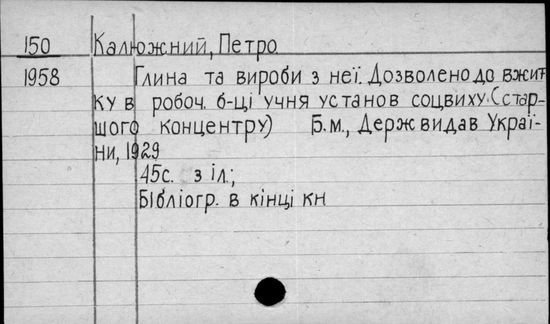 150 Калюжний, Петро
1958 Глина та вироби з неї. Дозволено до вжит
ку в робоч. б-ці учня установ соцвиху. (стар-
шого концентру) Б.м., Держвидав Украї-
ни, 1929
45с. з іл.;
Бібліогр. в кінці кн